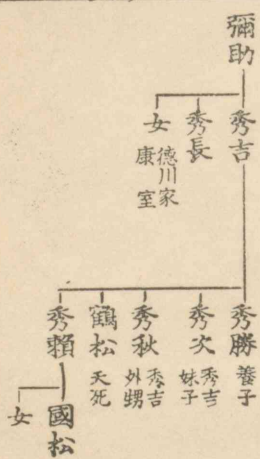 彌助
秀吉
秀長
女 德川家康室
秀勝 養子
秀次 秀吉妹子
秀秋 秀吉外甥
鶴松 夭死
秀賴
國松
女